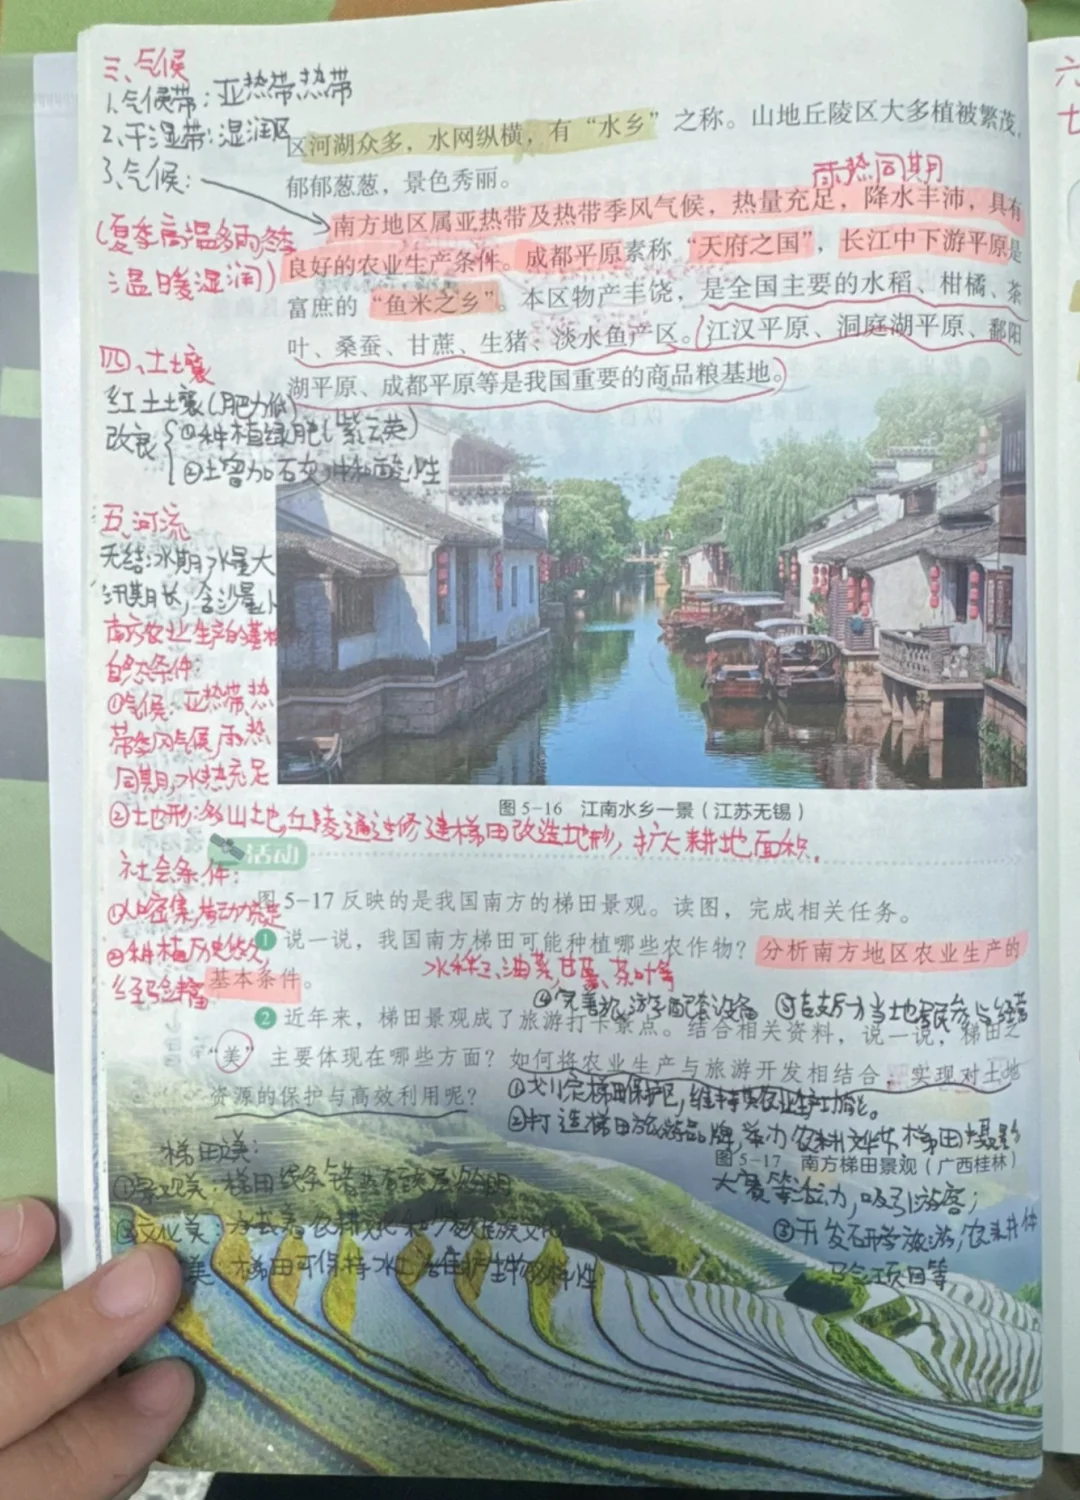 三、气候
1.气候带：亚热带、热带
2.干湿带：湿润区
3.气候：
(夏季高温多雨，冬季
温暖湿润)
四、土壤
红土土壤(肥力低)
改良{①种植绿肥(紫云英)
②土曾加石灰，中和酸性
五、河流
无结冰期，水量大
汛期长，含沙量小
南方农业生产的基本
自然条件：
①气候：亚热带、热
带季风气候，雨热
同期，水热充足
②土地形：多山地，丘陵，通过修建梯田改造地形，扩大耕地面积。
社会条件：
①人口密集，劳动力充足
②种植历史悠久，
经验丰富
区河湖众多，水网纵横，有“水乡”之称。山地丘陵区大多植被繁茂，
郁郁葱葱，景色秀丽。
雨热同期
南方地区属亚热带及热带季风气候，热量充足，降水丰沛，具有
良好的农业生产条件。成都平原素称“天府之国”，长江中下游平原是
富庶的“鱼米之乡”。本区物产丰饶，是全国主要的水稻、柑橘、茶
叶、桑蚕、甘蔗、生猪、淡水鱼产区。江汉平原、洞庭湖平原、鄱阳
湖平原、成都平原等是我国重要的商品粮基地。
图 5-16 江南水乡一景（江苏无锡）
活动
图 5-17 反映的是我国南方的梯田景观。读图，完成相关任务。
1 说一说，我国南方梯田可能种植哪些农作物？分析南方地区农业生产的
基本条件。
水稻、油菜、甘薯、茶叶等
④完善旅游配套设备 ⑤支方当地居民参与经营
2 近年来，梯田景观成了旅游打卡景点。结合相关资料，说一说，梯田之
“美”主要体现在哪些方面？如何将农业生产与旅游开发相结合，实现对土地
资源的保护与高效利用呢？
①划定梯田保护区，维持其农业生产功能。
②打造梯田旅游品牌，举办农耕文化节、梯田摄影
大赛等活力，吸引游客；
③开发研学旅游，农耕体
验项目等
图 5-17 南方梯田景观（广西桂林）
梯田美：
①景观美：梯田线条错落有致，层次分明
②文化美：农耕文化和少数民族文化
美：梯田可保持水土，维护生物多样性
六
七